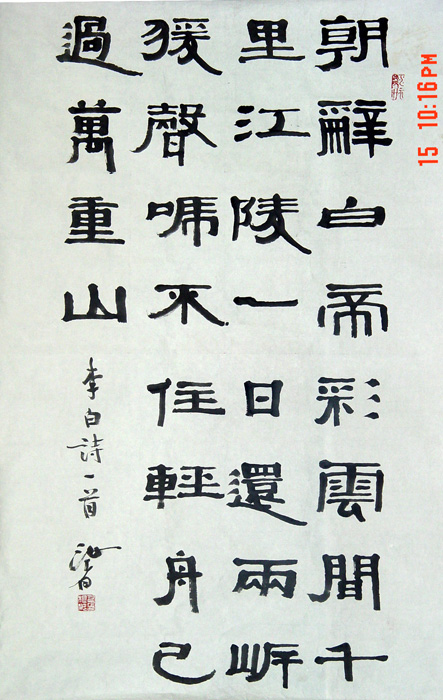 朝辭白帝彩雲間千
里江陵一日還兩岸
猨聲啼不住輕舟已
過萬重山
李白詩一首
15 10:16PM